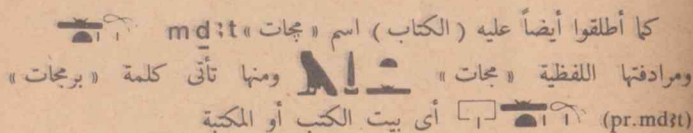 كما أطلقوا أيضاً عليه (الكتاب) اسم «مجات» mḏꜣt
ومرادفتها اللفظية «مجات» ومنها تأتى كلمة «برمجات»
(pr.mḏꜣt) أى بيت الكتب أو المكتبة